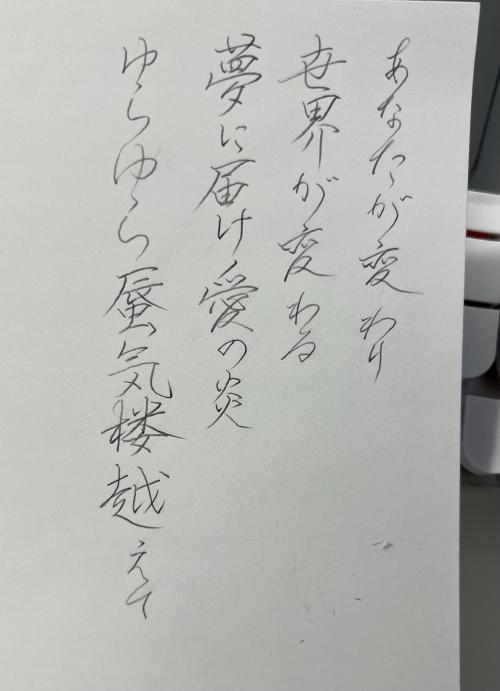 あなたが変わり
世界が変わる
夢に届け愛の炎
ゆらゆら蜃気楼越えて